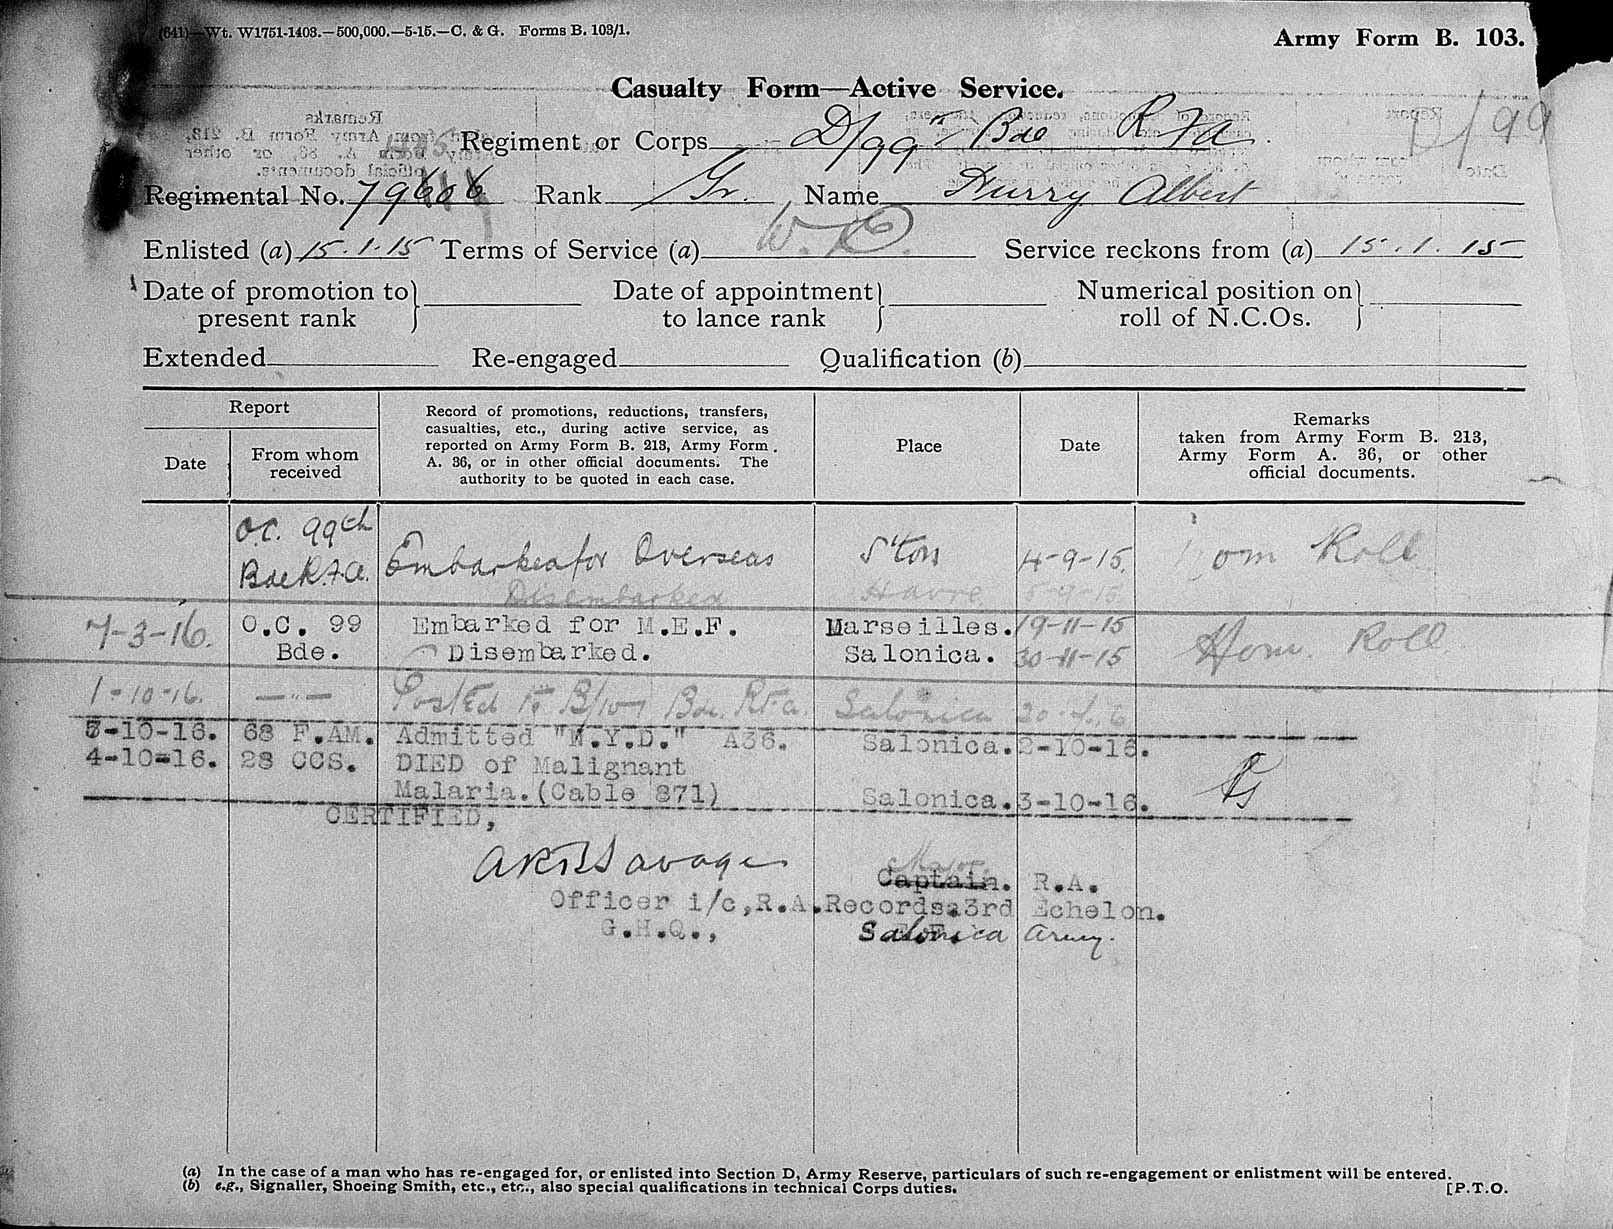 (641)—Wt. W1751-1403.—500,000.—5-15.—C. & G. Forms B. 103/1.
Army Form B. 103.
Casualty Form—Active Service.
D/99
Regiment or Corps D/99th Bde RFA
Regimental No. 79606 Rank Gr. Name Hurry Albert
Enlisted (a) 15.1.15 Terms of Service (a) Service reckons from (a) 15.1.15
Date of promotion to present rank Date of appointment to lance rank Numerical position on roll of N.C.Os.
Extended Re-engaged Qualification (b)
Report
Date
From whom received
Record of promotions, reductions, transfers,
casualties, etc., during active service, as
reported on Army Form B. 213, Army Form
A. 36, or in other official documents. The
authority to be quoted in each case.
Place
Date
Remarks
taken from Army Form B. 213,
Army Form A. 36, or other
official documents.
O.C. 99th
Bde R.F.A. Embarked for Overseas S'ton 4-9-15. Nom Roll
Disembarked Havre 5-9-15
7-3-16. O.C. 99 Embarked for M.E.F. Marseilles. 19-11-15 Nom. Roll
Bde. Disembarked. Salonica. 30-11-15
1-10-16. —"— Posted to B/107 Bde. RFA. Salonica
3-10-16. 68 F.AM. Admitted "N.Y.D." A36. Salonica. 2-10-16.
4-10-16. 28 CCS. DIED of Malignant
Malaria.(Cable 871) Salonica. 3-10-16.
CERTIFIED,
Savage
Major
Captain. R.A.
Officer i/c,R.A.Records 3rd Echelon.
G.H.Q., Salonica Army.
(a) In the case of a man who has re-engaged for, or enlisted into Section D, Army Reserve, particulars of such re-engagement or enlistment will be entered.
(b) e.g., Signaller, Shoeing Smith, etc., etc., also special qualifications in technical Corps duties.
[P.T.O.